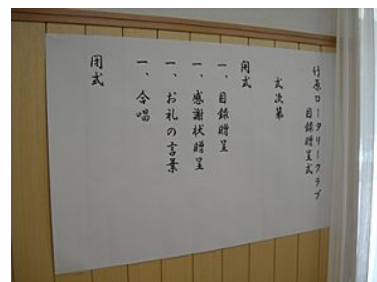 竹原ロータリークラブ
目録贈呈式
式次第
開式
一、目録贈呈
一、感謝状贈呈
一、お礼の言葉
一、合唱
閉式